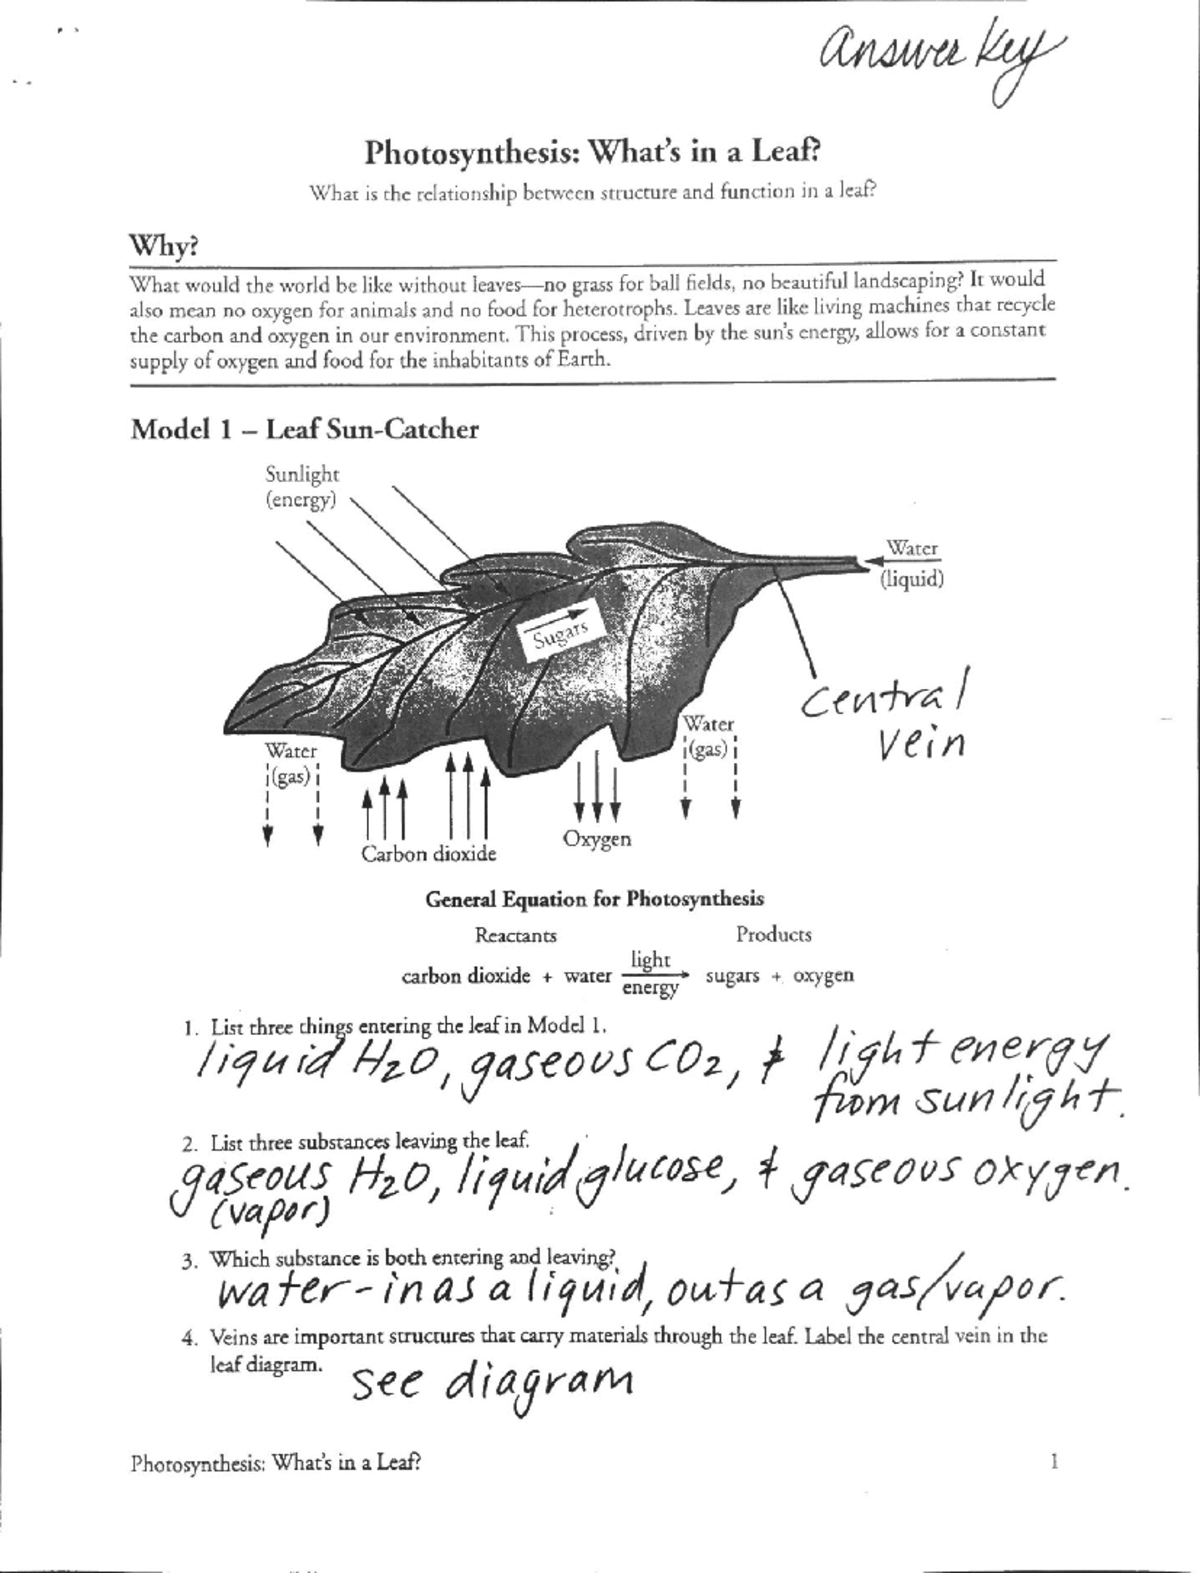 Answer Key
Photosynthesis: What's in a Leaf?
What is the relationship between structure and function in a leaf?
Why?
What would the world be like without leaves—no grass for ball fields, no beautiful landscaping? It would
also mean no oxygen for animals and no food for heterotrophs. Leaves are like living machines that recycle
the carbon and oxygen in our environment. This process, driven by the sun's energy, allows for a constant
supply of oxygen and food for the inhabitants of Earth.
Model 1 – Leaf Sun-Catcher
Sunlight
(energy)
Water
(liquid)
Sugars
central
vein
Water
(gas)
Water
(gas)
Carbon dioxide
Oxygen
General Equation for Photosynthesis
Reactants Products
carbon dioxide + water light energy sugars + oxygen
1. List three things entering the leaf in Model 1.
liquid H2O, gaseous CO2, & light energy
from sunlight.
2. List three substances leaving the leaf.
gaseous H2O, liquid glucose, & gaseous oxygen.
(vapor)
3. Which substance is both entering and leaving?
water - in as a liquid, out as a gas/vapor.
4. Veins are important structures that carry materials through the leaf. Label the central vein in the
leaf diagram.
see diagram
Photosynthesis: What's in a Leaf? 1